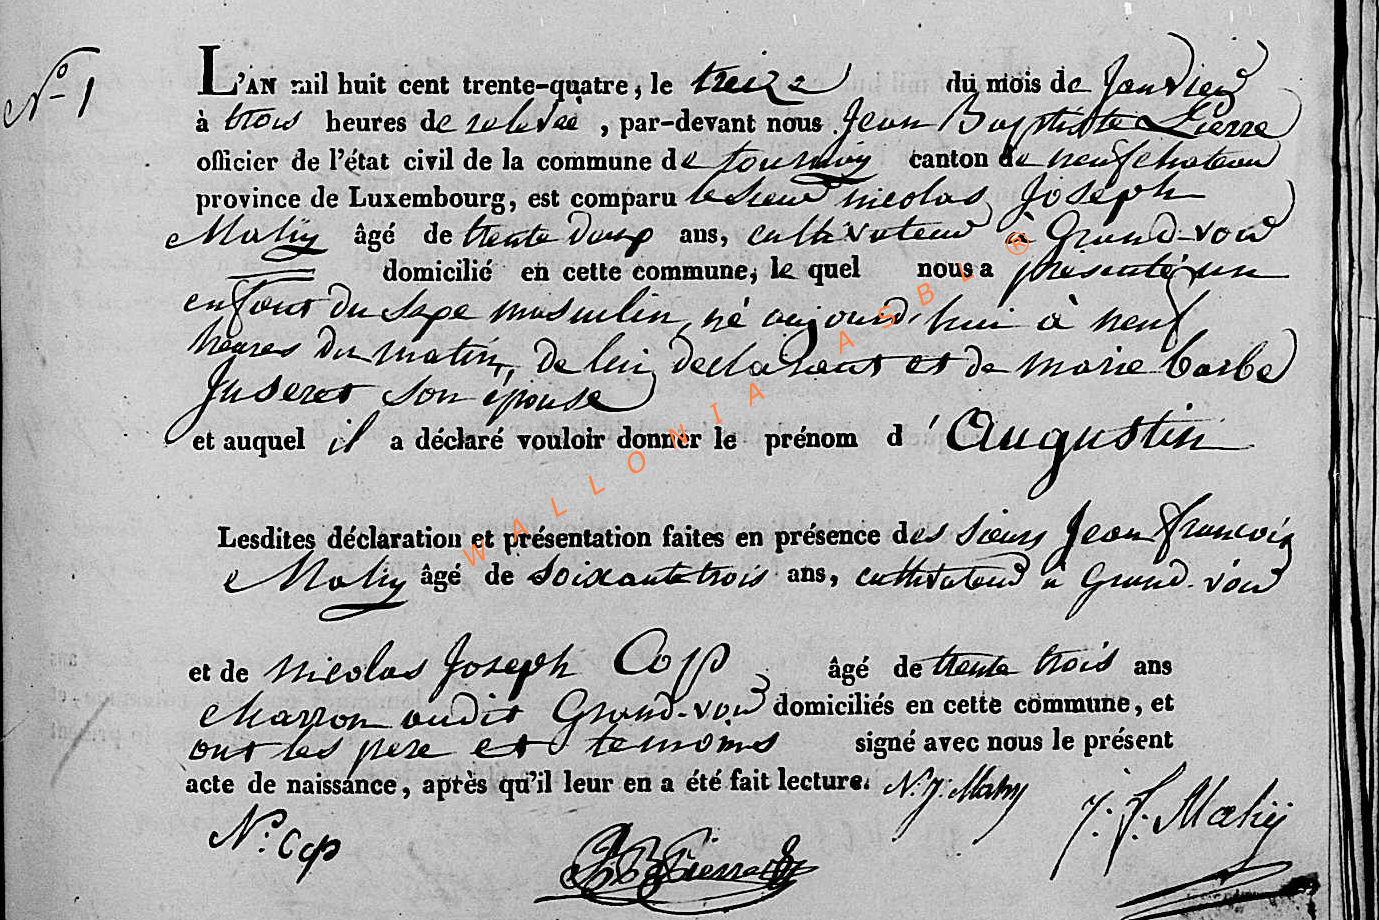 N° 1
L'AN mil huit cent trente-quatre, le treize du mois de Janvier
à trois heures de relevée, par-devant nous Jean Baptiste Pierre
officier de l'état civil de la commune de tournay canton de neufchateau
province de Luxembourg, est comparu le Sieur nicolas Joseph
Mahÿ âgé de trente deux ans, cultivateur à Grand-voir
domicilié en cette commune, le quel nous a présenté un
enfant du sexe masculin, né aujourd'hui à neuf
heures du matin, de lui déclarant et de marie barbe
Juseret son épouse
et auquel il a déclaré vouloir donner le prénom d'Augustin
Lesdites déclaration et présentation faites en présence des sieurs Jean francois
Mahy âgé de soixante trois ans, cultivateur à Grand-voir
et de nicolas Joseph Cop âgé de trente trois ans
charron audit Grand-voir domiciliés en cette commune, et
ont les pere et temoins signé avec nous le présent
acte de naissance, après qu'il leur en a été fait lecture. N. J. Mahy
J. F. Mahÿ
N. Cop
J B Pierre
WALLONIA ASBL ®